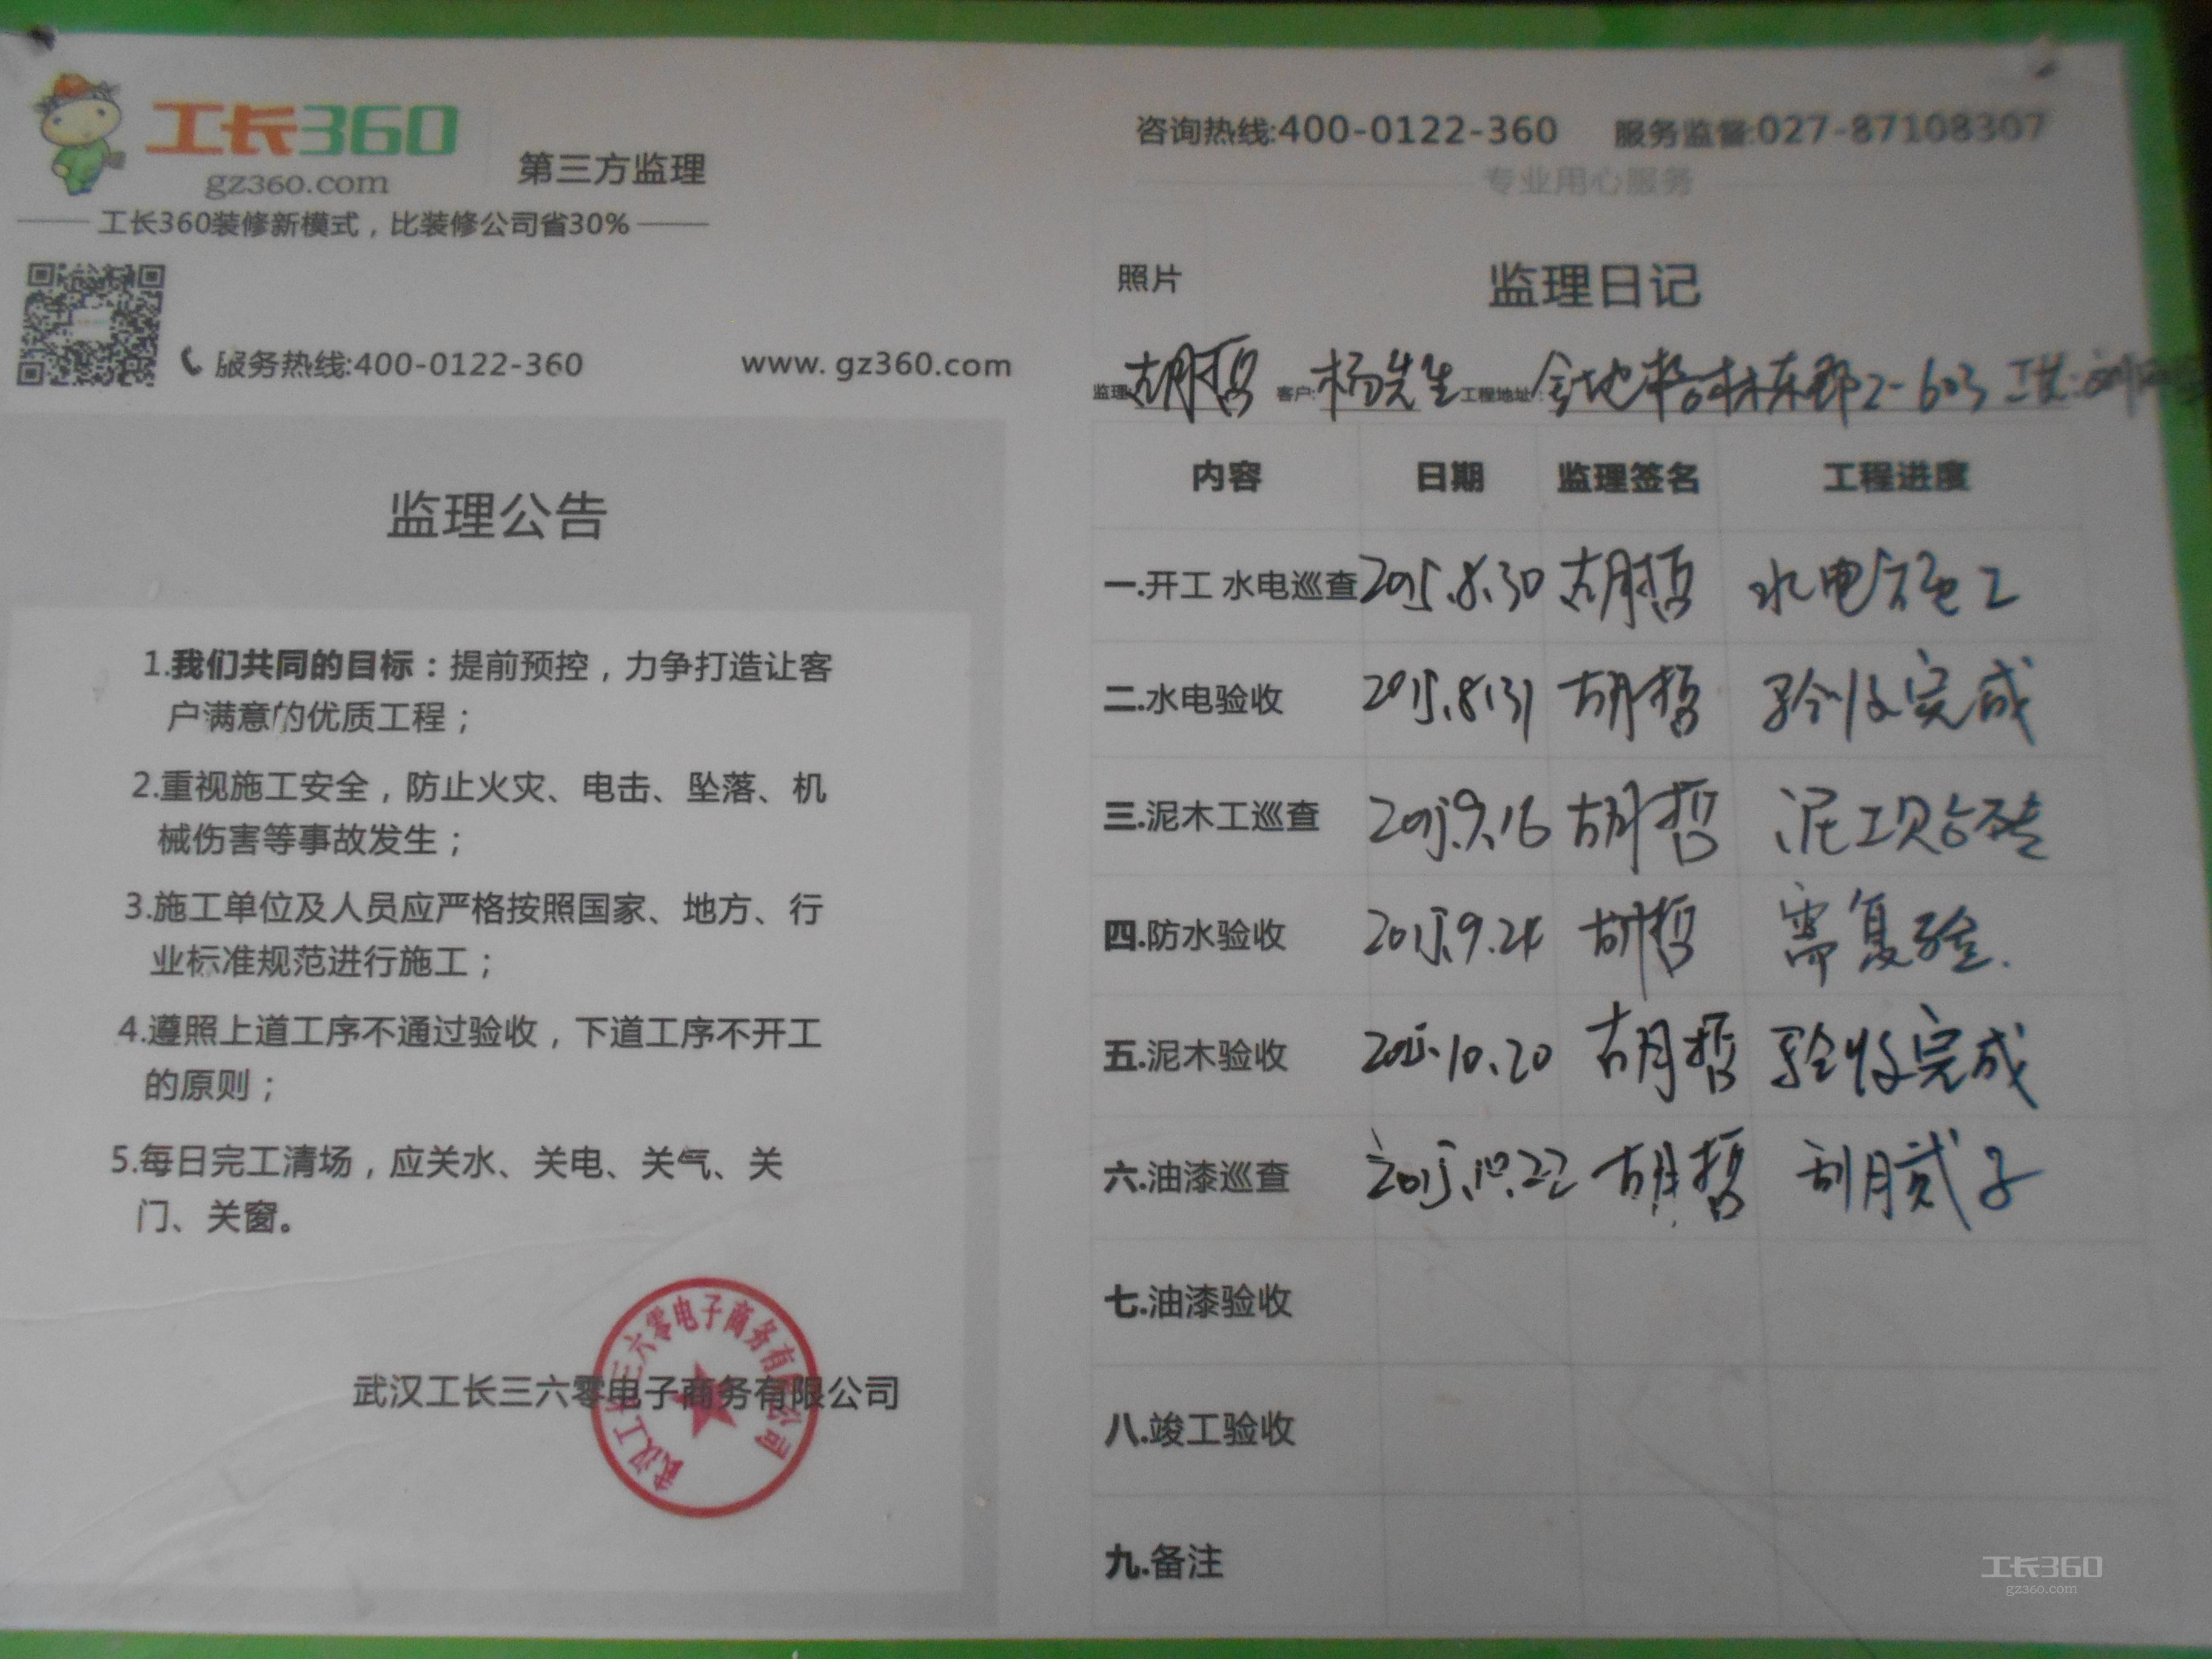 工长360
gz360.com
第三方监理
工长360装修新模式，比装修公司省30%
服务热线:400-0122-360
www.gz360.com
监理公告
1.我们共同的目标：提前预控，力争打造让客
户满意的优质工程；
2.重视施工安全，防止火灾、电击、坠落、机
械伤害等事故发生；
3.施工单位及人员应严格按照国家、地方、行
业标准规范进行施工；
4.遵照上道工序不通过验收，下道工序不开工
的原则；
5.每日完工清场，应关水、关电、关气、关
门、关窗。
武汉工长三六零电子商务有限公司
武汉工长三六零电子商务有限公司
咨询热线:400-0122-360 服务监督:027-87108307
专业用心服务
照片
监理日记
监理:胡哲 客户:杨先生 工程地址:金地格林东郡2-603 工长:刘
内容 日期 监理签名 工程进度
一.开工 水电巡查 2015.8.30 胡哲 水电施工
二.水电验收 2015.8.31 胡哲 验收完成
三.泥木工巡查 2015.9.16 胡哲 泥工贴砖
四.防水验收 2015.9.24 胡哲 需复验.
五.泥木验收 2015.10.20 胡哲 验收完成
六.油漆巡查 2015.10.22 胡哲 刮腻子
七.油漆验收
八.竣工验收
九.备注
工长360
gz360.com